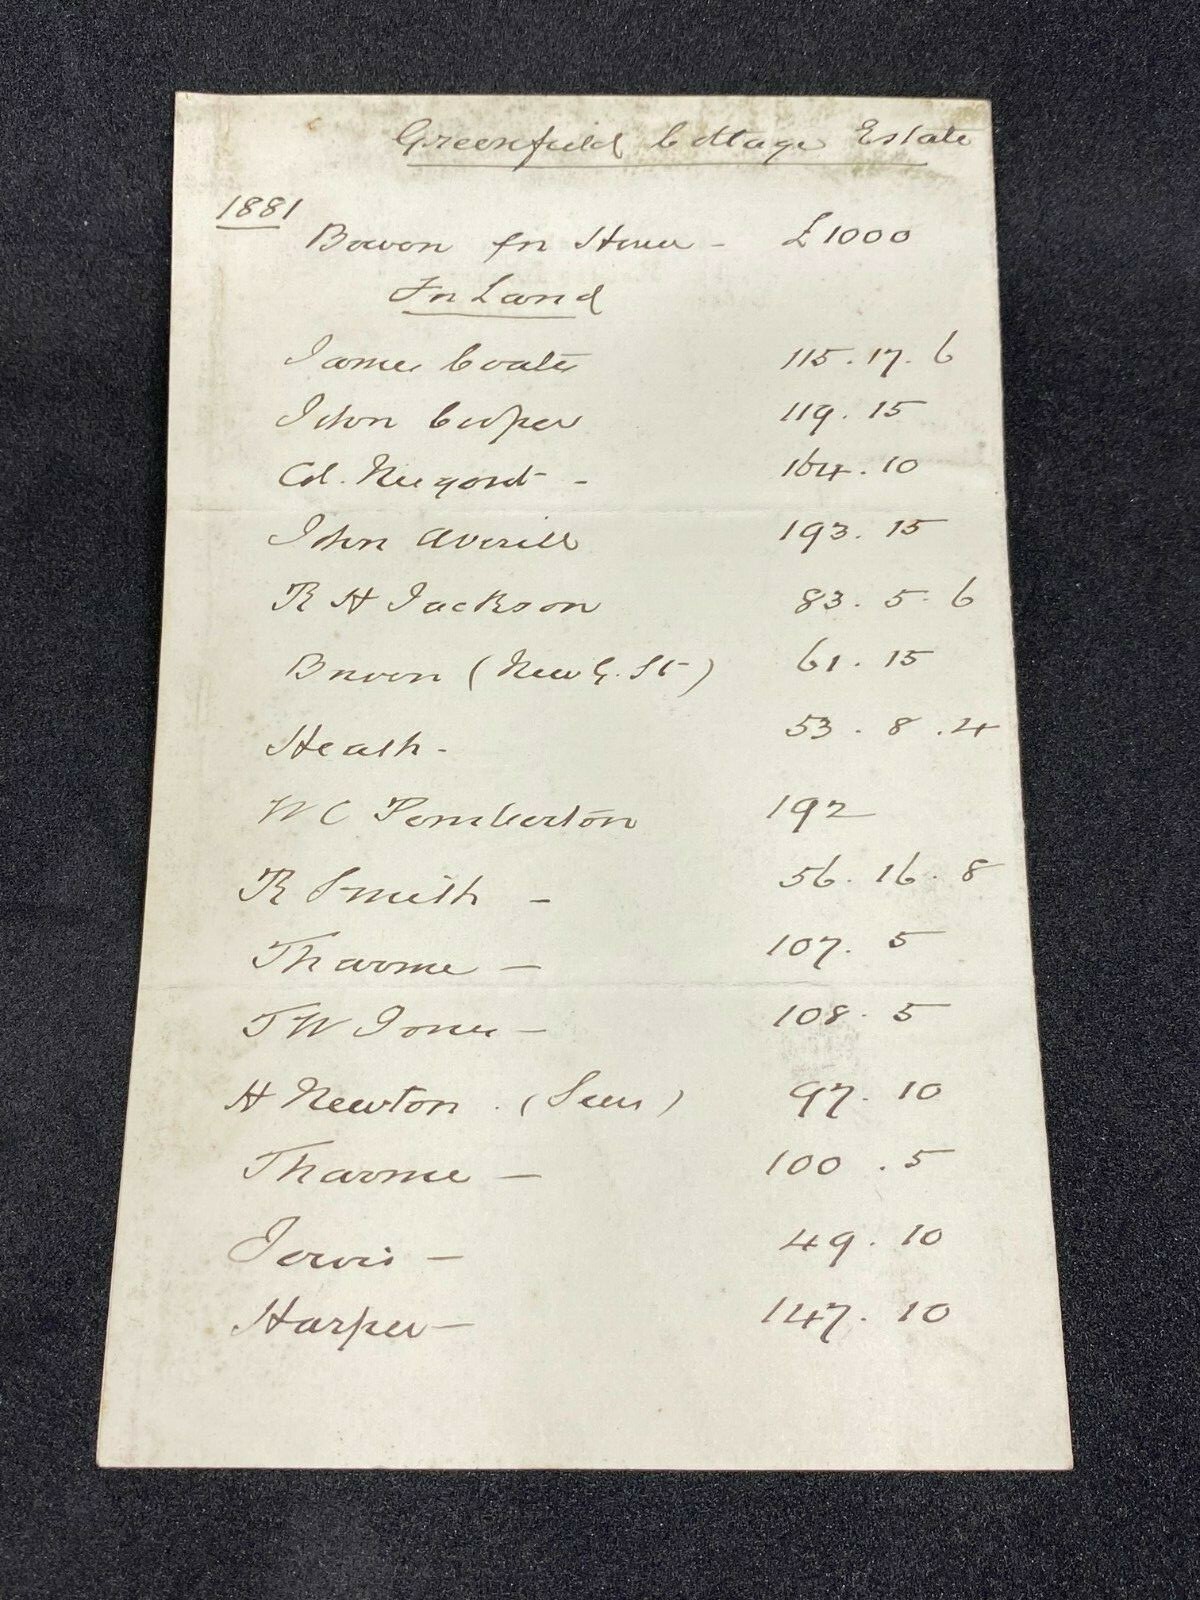 Greenfield Cottage Estate
1881
Bowon for House - £1000
For Land
James Coates 115. 17. 6
John Cooper 119. 15
Col. Nugent - 164. 10
John Averill 193. 15
R H Jackson 83. 5. 6
(New G. St) 61. 15
Heath - 53. 8. 4
W C Pemberton 192
R Smith - 56. 16. 8
Tharme - 107. 5
T W Jones - 108. 5
H Newton. ( ) 97. 10
Tharme - 100. 5
Jervis - 49. 10
Harper - 147. 10